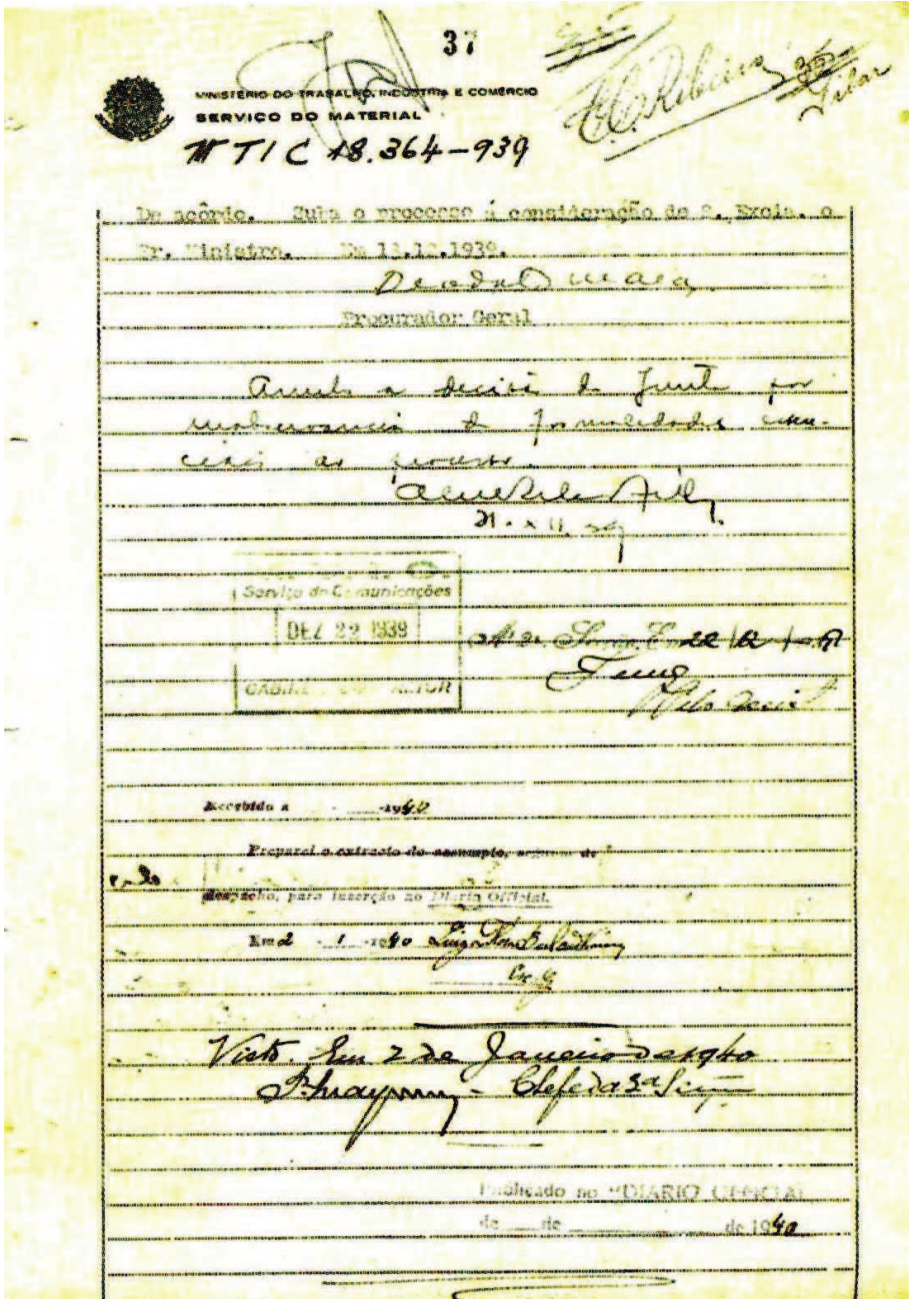 37
C.C. Ribeiro
Pilar
MINISTERIO DO TRABALHO, INDUSTRIA E COMERCIO
SERVIÇO DO MATERIAL
MTIC 18.364-939
De acôrdo. Suba o processo á consideração de S. Excia. o
Sr. Ministro. Em 13.12.1939.
Deodato Maia
Procurador Geral
Annulo a decisão da Junta por
inobservancia de formalidades essen-
ciais ao processo.
21. XII. 39
Serviço de Comunicações
DEZ 22 1939
22/12/
Recebido a - -1940
Preparei o extracto do assumpto, de
despacho, para inserção no Diario Official.
Em 2 - 1 - 1940
Visto. Em 2 de Janeiro de 1940
Chefe da 3ª
Publicado no "DIARIO OFFICIAL
de de de 1940